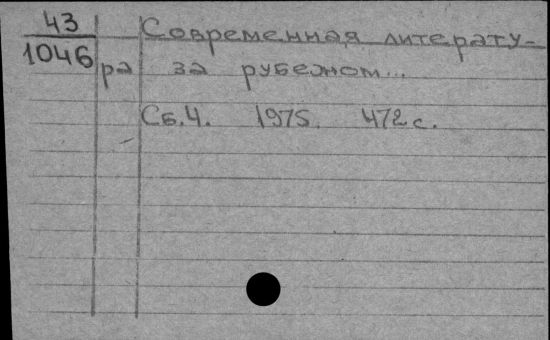 43
1046
Современная литерату-
ра за рубежом...
Сб.4. 1975. 472с.